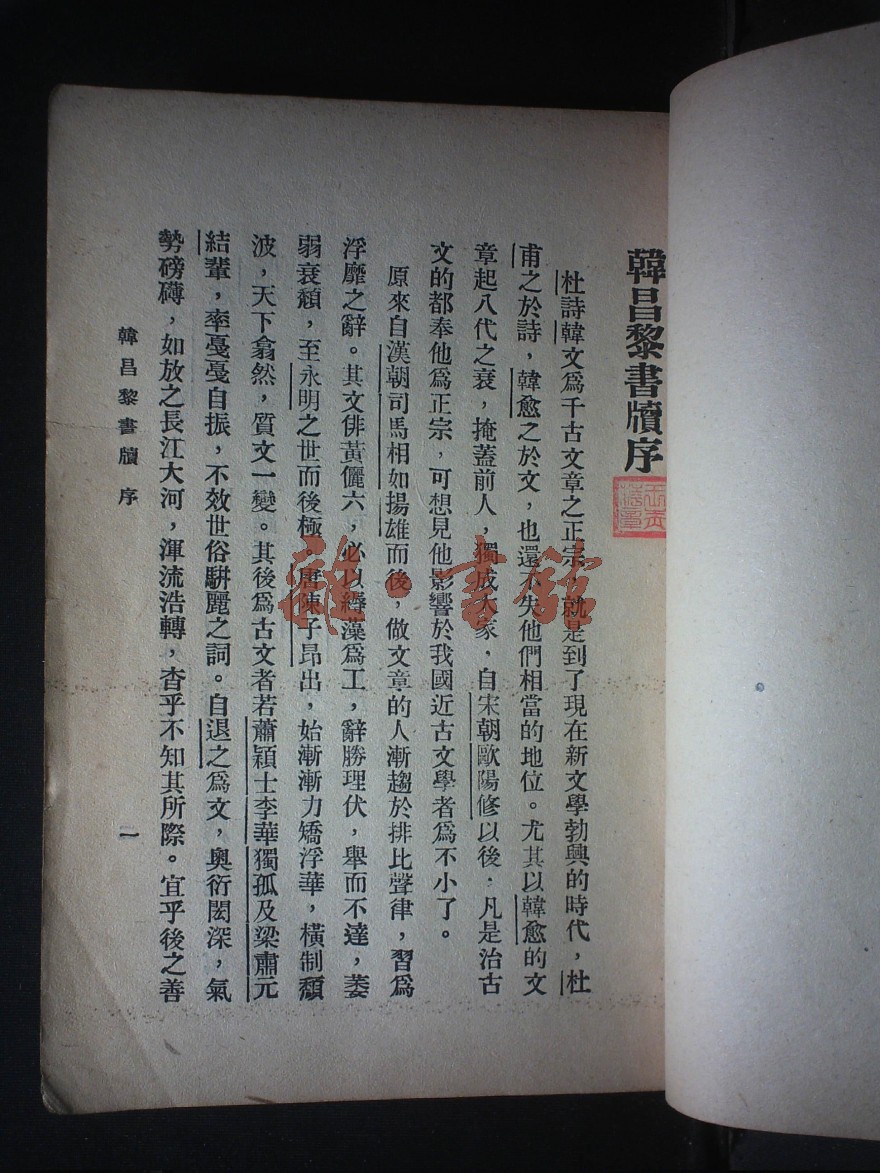 韓昌黎書牘序
杜詩韓文爲千古文章之正宗,就是到了現在新文學勃興的時代,杜
甫之於詩,韓愈之於文,也還不失他們相當的地位。尤其以韓愈的文
章起八代之衰,掩蓋前人,獨成大家,自宋朝歐陽修以後,凡是治古
文的都奉他爲正宗,可想見他影響於我國近古文學者爲不小了。
原來自漢朝司馬相如揚雄而後,做文章的人漸趨於排比聲律,習爲
浮靡之辭。其文俳黃儷六,必以縟藻爲工,辭勝理伏,舉而不達,萎
弱衰頹,至永明之世而後極。唐陳子昂出,始漸漸力矯浮華,橫制頹
波,天下翕然,質文一變。其後爲古文者若蕭穎士李華獨孤及梁肅元
結輩,率戞戞自振,不效世俗駢麗之詞。自退之爲文,奧衍閎深,氣
勢磅礴,如放之長江大河,渾流浩轉,杳乎不知其所際。宜乎後之善
韓昌黎書牘 序
一
雜·書館